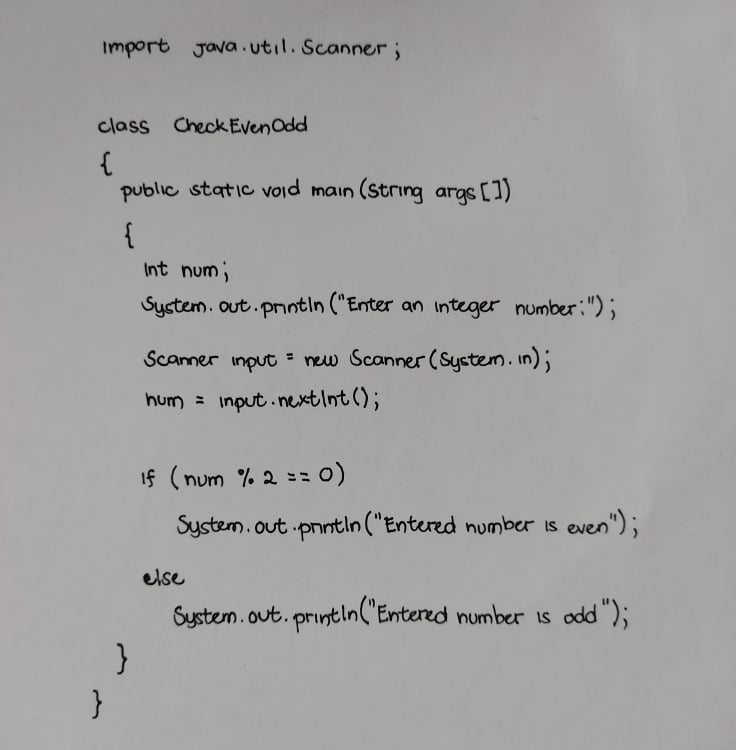 import java.util.Scanner;
class CheckEvenOdd
{
public static void main(String args[])
{
int num;
System.out.println("Enter an integer number:");
Scanner input = new Scanner(System.in);
num = input.nextInt();
if (num % 2 == 0)
System.out.println("Entered number is even");
else
System.out.println("Entered number is odd");
}
}